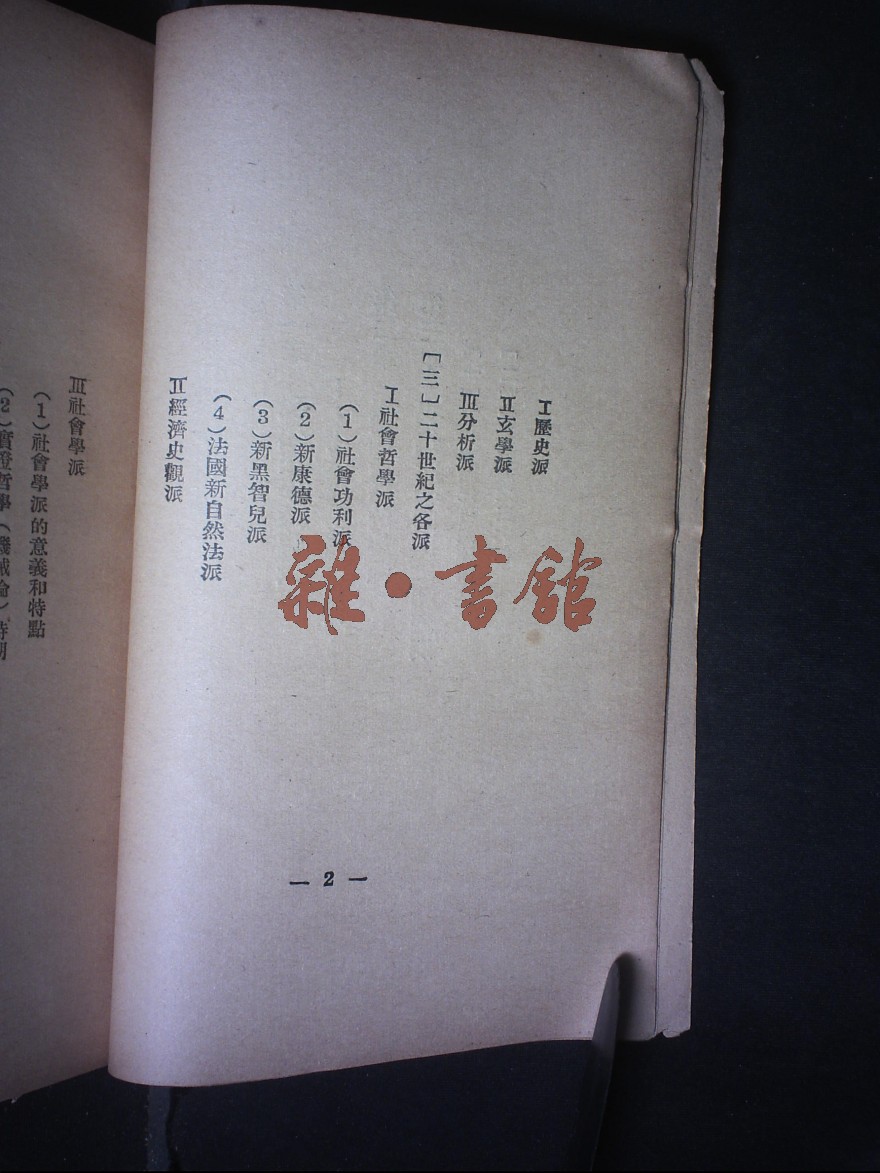 I歷史派
II玄學派
III分析派
[三]二十世紀之各派
I社會哲學派
(1)社會功利派
(2)新康德派
(3)新黑智兒派
(4)法國新自然法派
II經濟史觀派
— 2 —
III社會學派
(1)社會學派的意義和特點
(2)實證哲學(機械論)時期
雜•書館